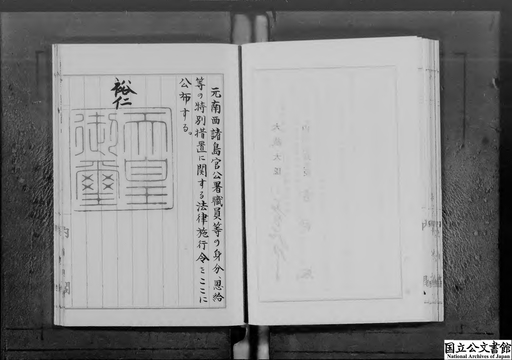 元南西諸島官公署職員等の身分、恩給
等の特別措置に関する法律施行令をここに
公布する。
裕仁
天皇
御璽
大蔵大臣
国立公文書館
National Archives of Japan